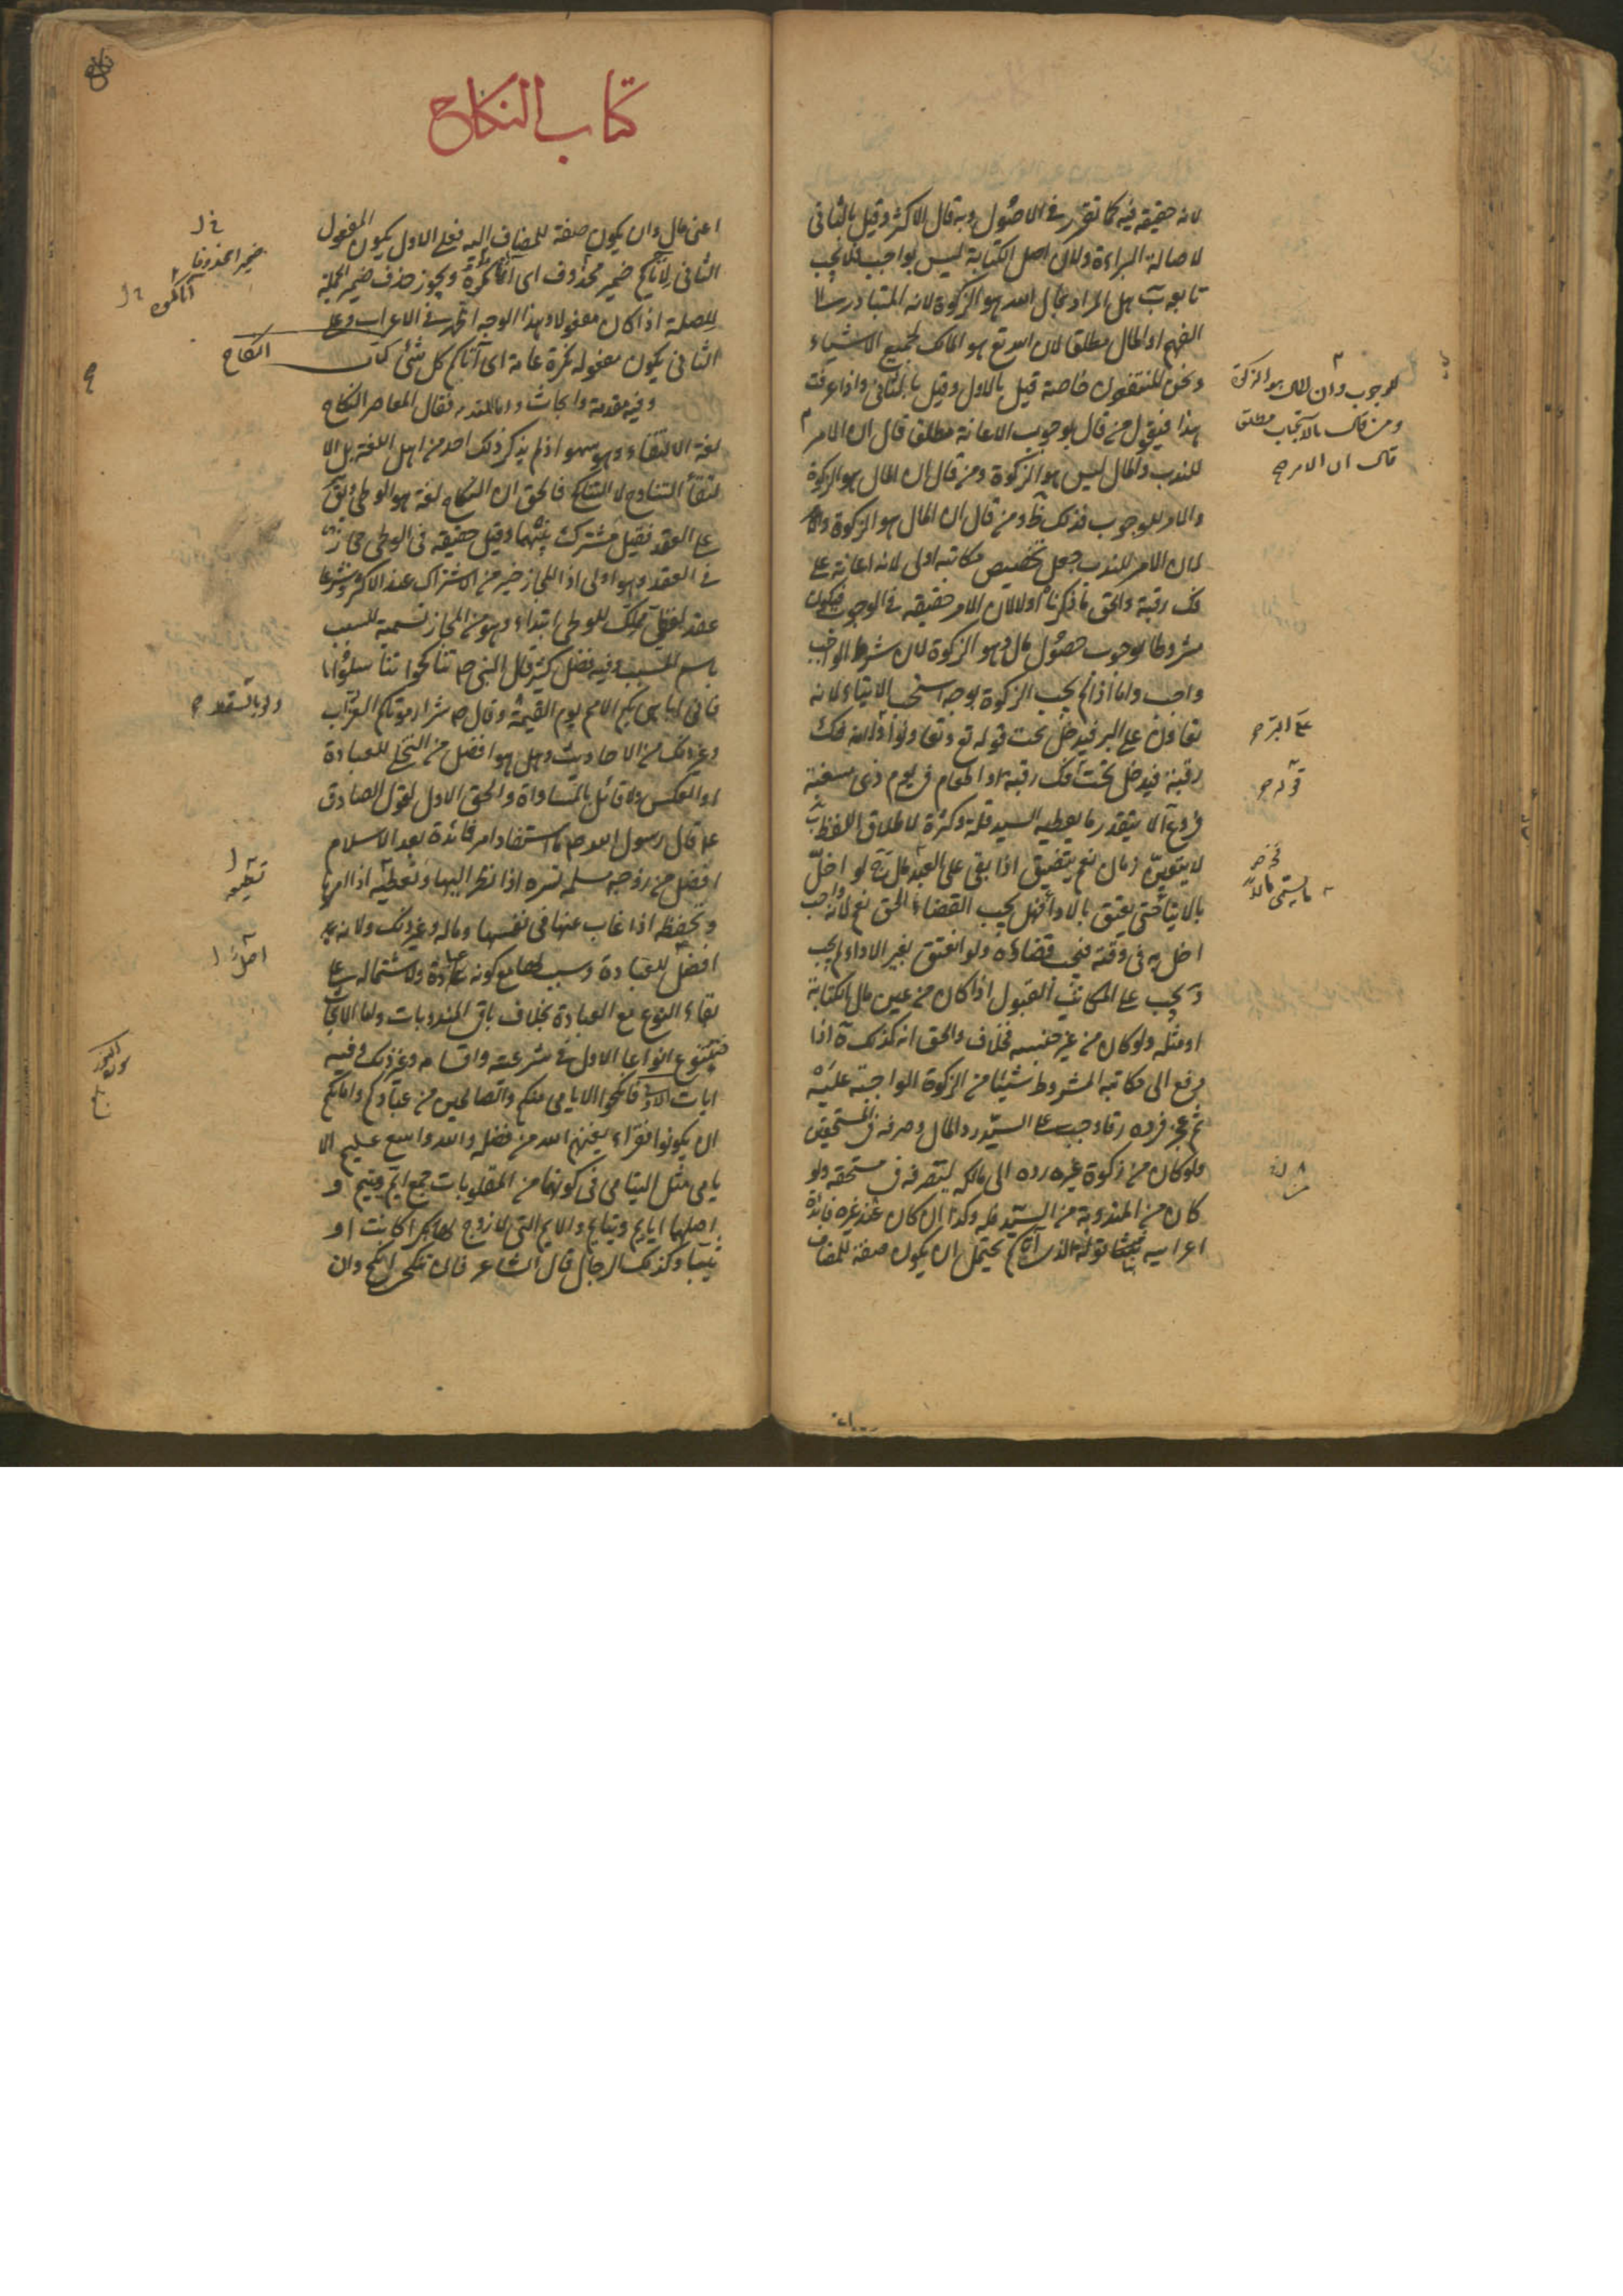 لانه حقيقة فيه كما تقرر في الاصول وبه قال الاكثر وقيل بالثاني
لاصالة البراءة ولان اصل الكتابة ليس بواجب فلا يجب
تابعه ب هل المراد بمال الله هو الزكوة لانه المتبادر الى
الفهم او المال مطلقا لان الله تع هو المالك لجميع الاشياء
ونحن المنتفعون خاصة قيل بالاول وقيل بالثاني واذا عرفت
هذا فنقول من قال بوجوب الاعانة مطلقا قال ان الامر
للوجوب وان المال هو الزكوة
ومن قال بالاستحباب مطلقا
قال ان الامر صح
للندب والمال ليس هو الزكوة ومن قال ان المال هو الزكوة
والامر للوجوب فذلك ظ ومن قال ان المال هو الزكوة وان
كان الامر للندب جعل تخصيص مكاتبه اولى لانه اعانة على
فك رقبة والحق ما ذكرناه اولا لان الامر حقيقة في الوجوب فيكون
مشروطا بوجوب حصول مال وهو الزكوة لان شرط الواجب
واجب واما اذا لم يجب الزكوة يوجه استحباب الايتاء لانه
تعاون على البر فيدخل تحت قوله تع وتعاونوا ولانه فك
على البر صح
رقبة فيدخل تحت فك رقبة او اطعام في يوم ذي مسغبة
قوله صح
فروع آ لا يتقدر ما يعطيه السيد قلة وكثرة لاطلاق اللفظ ب
لا يتعين زمان نعم يتضيق اذا بقي على العبد مال ج لو اخل
ما يسمى مالا
بالايتاء حتى يعتق بالاداء فهل يجب القضاء الحق نعم لانه واجب
اخل به في وقته فيجب قضاؤه ولو انعتق بغير الاداء لم يجب
د يجب على المكاتب القبول اذا كان من عين مال الكتابة
او مثله ولو كان من غير جنسه فخلاف والحق انه كذلك ه اذا
دفع الى مكاتبه المشروط شيئا من الزكوة الواجبة عليه
ثم عجز فرده رقا وجب على السيد رد المال وصرفه في المستحقين
ولو كان من زكوة غيره رده الى مالكه ليصرفه في مستحقه ولو
كان من المندوبة من السيد فله وكذا ان كان عند غيره فائدة
اعرابية قوله الذي آتاكم يحتمل ان يكون صفة للمضاف
كتاب النكاح
اعني مال وان يكون صفة للمضاف اليه فعلى الاول يكون المفعول
الثاني لآتاكم ضمير محذوف اى آتاكموه ويجوز حذف ضمير الجملة
ضميرا محذوفا
آتاكموه
للصلة اذا كان مفعولا وهذا الوجه اظهر في الاعراب وعلى
الثاني يكون مفعوله نكرة عامة اى آتاكم كل شئ كتاب النكاح
وفيه مقدمة وابحاث واما المقدمة فقال المعاصر النكاح
لغة الالتقاء وهو سهو اذ لم يذكر ذلك احد من اهل اللغة بل الا
لتقاء التناوح لا التناكح فالحق ان النكاح لغة هو الوطي ويق
على العقد فقيل مشترك بينهما وقيل حقيقة في الوطي مجاز
في العقد وهو اولى اذ المجاز خير من الاشتراك عند الاكثر وشرعا
عقد لفظي مملك للوطي ابتداء وهو من المجاز تسمية للسبب
باسم المسبب وفيه فضل كثير قال النبي ص تناكحوا تناسلوا
ولو بالسقط صح
فاني اباهي بكم الامم يوم القيمة وقال ص شرار موتاكم العزاب
وغير ذلك من الاحاديث وهل هو افضل من التخلي للعبادة
او العكس ولا قائل بالمساواة والحق الاول لقول الصادق
ع قال رسول الله ص ما استفاد امرء فائدة بعد الاسلام
افضل من زوجة مسلمة تسره اذا نظر اليها وتطيعه اذا امرها
تطيعه
وتحفظه اذا غاب عنها في نفسها وماله وغير ذلك ولانه
اصل
افضل للعبادة وسبب لها مع كونه عبادة ولاشتماله على
بقاء النوع مع العبادة بخلاف باقي المندوبات واما الابحاث
فتتنوع انواعا الاول في شرعيته واقسامه وغير ذلك وفيه
ايات الاولى فانكحوا الايامى منكم والصالحين من عبادكم وامائكم
ان يكونوا فقراء يغنهم الله من فضله والله واسع عليم الا
يامى مثل اليتامى في كونهما من المقلوبات جمع ايم ويتيم و
اصلهما ايايم ويتايم والايم التي لا زوج لها بكرا كانت او
ثيبا وكذلك الرجال قال الشاعر فان تنكحي انكح وان